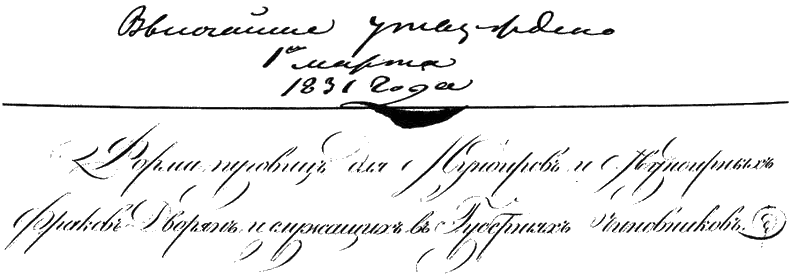 Высочайше утверждено
1го марта
1831 года
Форма пуговицъ для Мундировъ и Мундирныхъ
фраковъ Дворянъ и служащихъ въ Губернiяхъ Чиновниковъ.